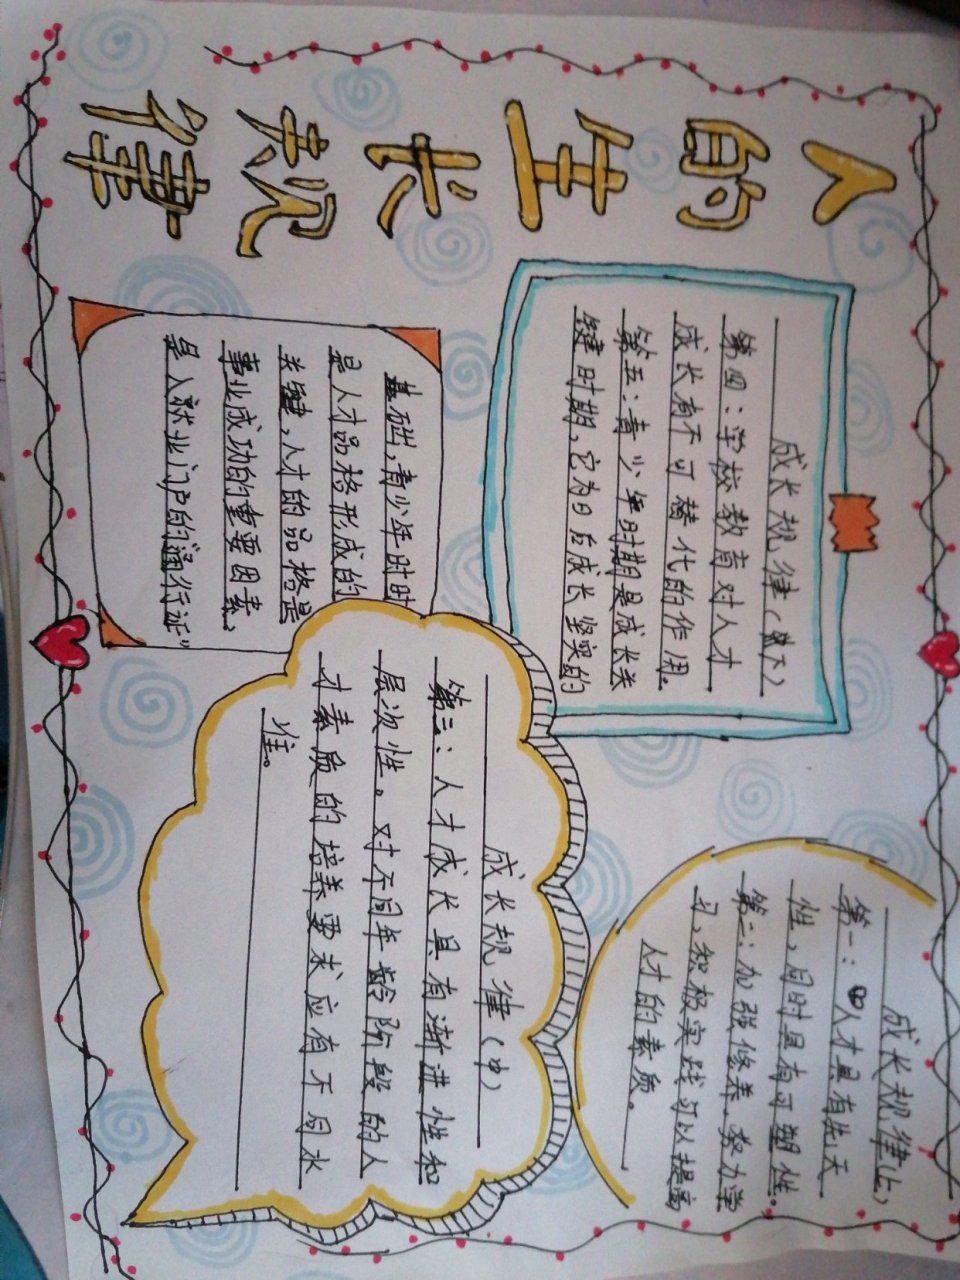 人的生长规律
成长规律(上)
第一:人才具有先天
性,同时具有可塑性。
第二:加强修养、努力学
习,积极实践可以提高
人才的素质。
成长规律(中)
第三:人才成长具有渐进性和
层次性。对不同年龄阶段的人
才素质的培养要求应有不同水
准。
成长规律(下)
第四:学校教育对人才
成长有不可替代的作用。
第五:青少年时期是成长关
键时期,它为日后成长坚实的
基础,青少年时时
是人才品格形成的
关键,人才的品格是
事业成功的重要因素,
是人就业门户的“通行证”